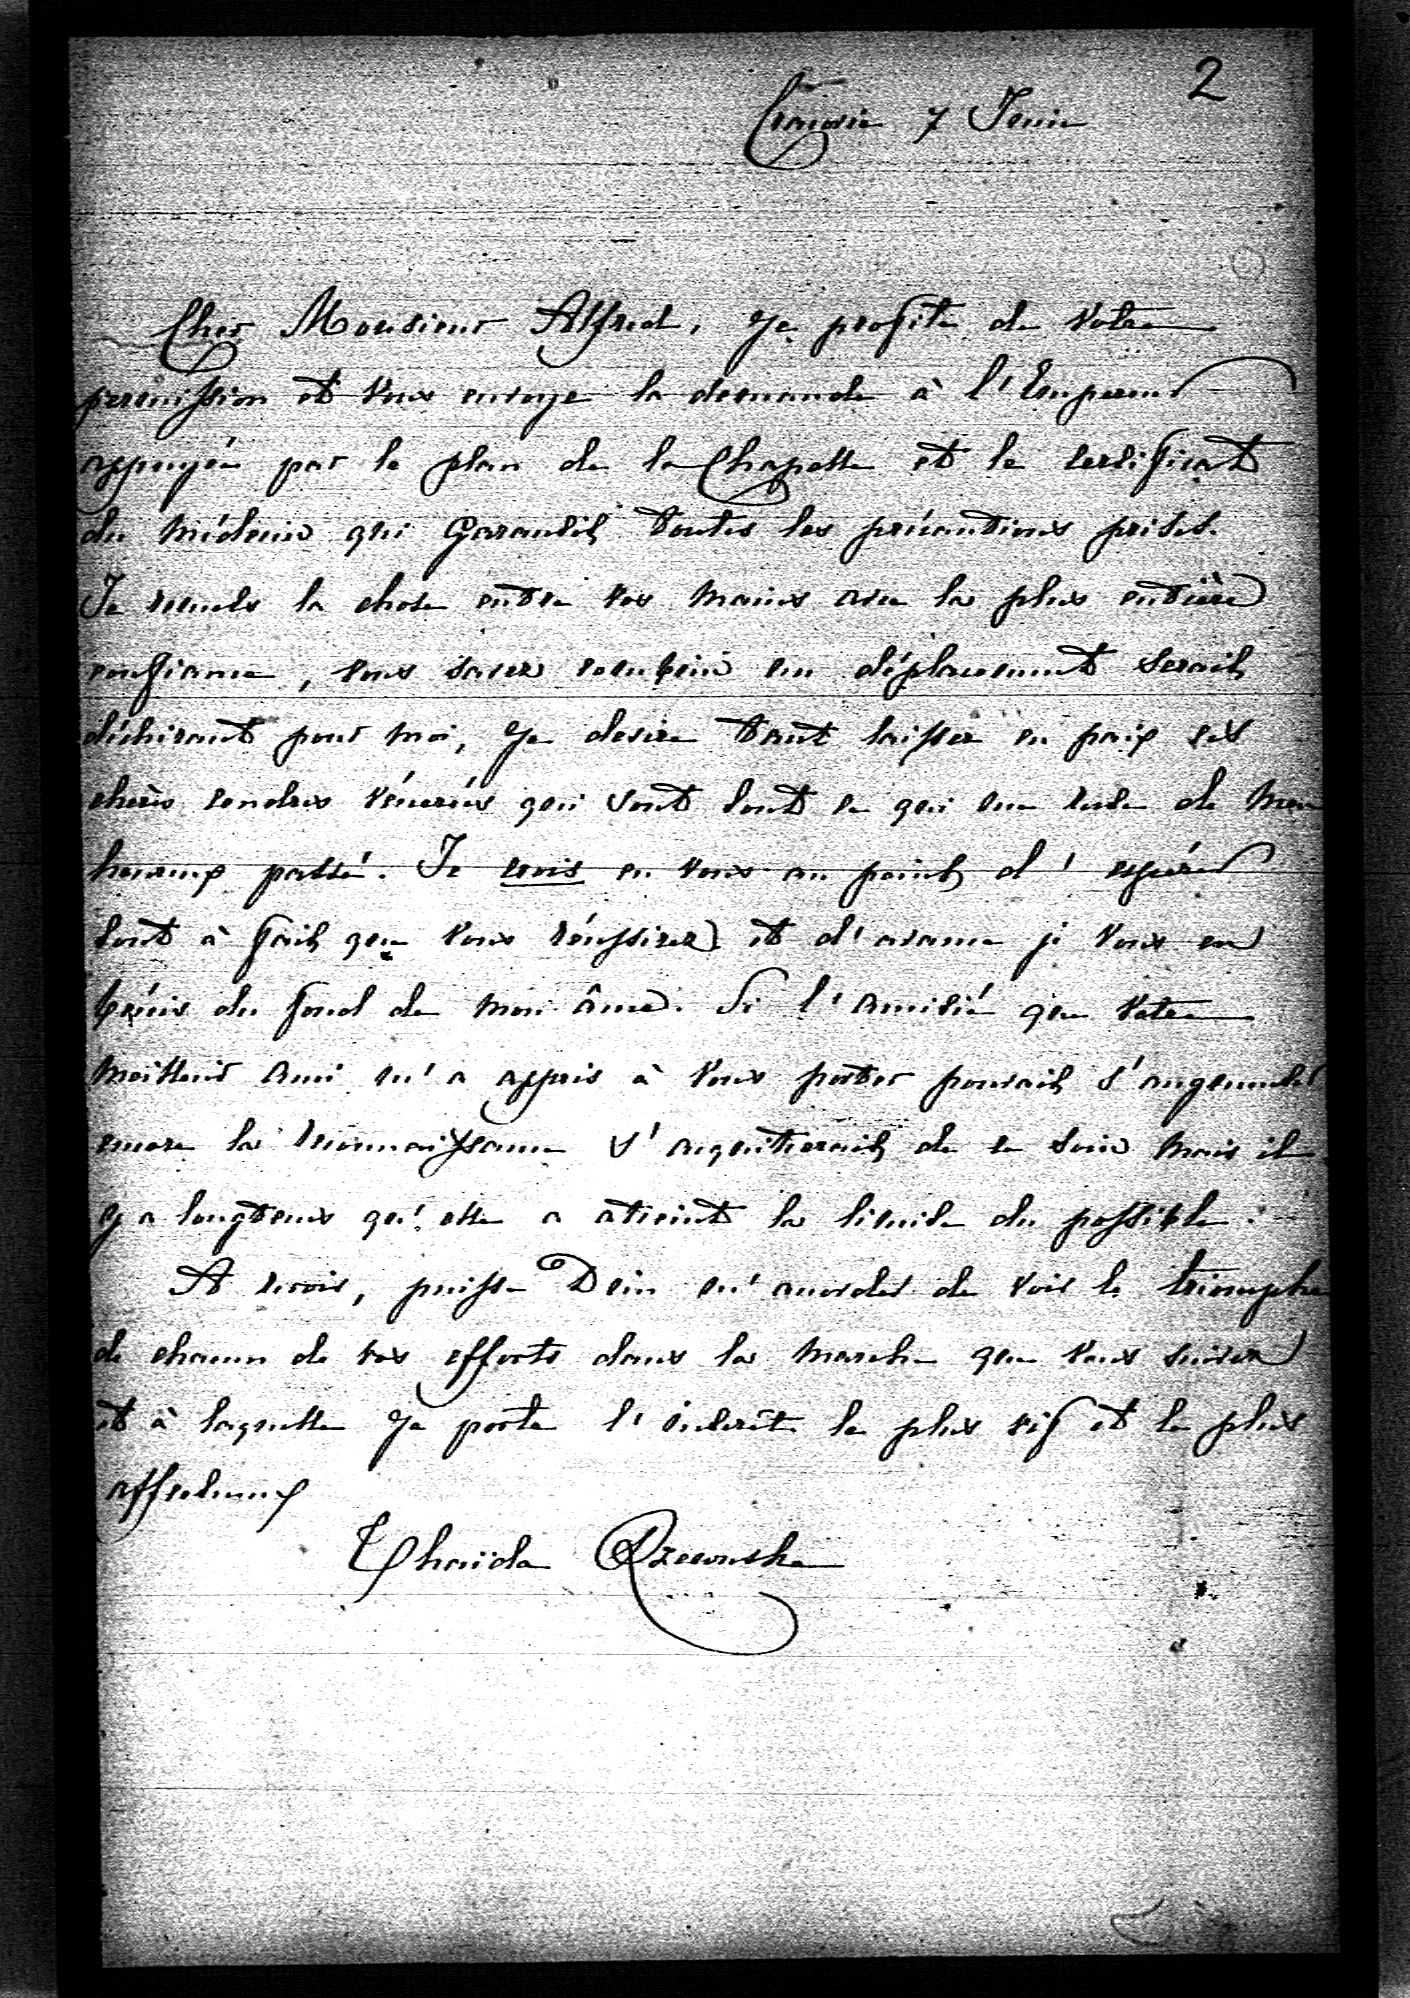 2
Cracovie 7 Juin
Cher Monsieur Alfred, je profite de votre
permission et vous envoye la demande à l'Empereur
appuyée par le plan de la Chapelle et le certificat
du médecin qui garantit toutes les précautions prises.
Je remets la chose entre vos mains avec la plus entière
confiance, vous savez combien un déplacement serait
déchirant pour moi, je desire tant laisser en paix ces
chères cendres vénérées qui sont tout ce qui me reste de mon
heureux passé. Je crois en vous au point d'espérer
tout à fait que vous réussirez et d'avance je vous en
bénis du fond de mon âme. Si l'amitié que votre
meilleur ami m'a appris à vous porter pouvait s'augmenter
encore la reconnaissance s'aquitterait de ce soin mais il
y a longtems qu'elle a atteint la limite du possible.
A revoir, puisse Dieu m'accorder de voir le triomphe
de chacun de vos efforts dans la marche que vous suivez
et à laquelle je porte l'intérêt le plus vif et le plus
affectueux
Thaïda Rzewuska